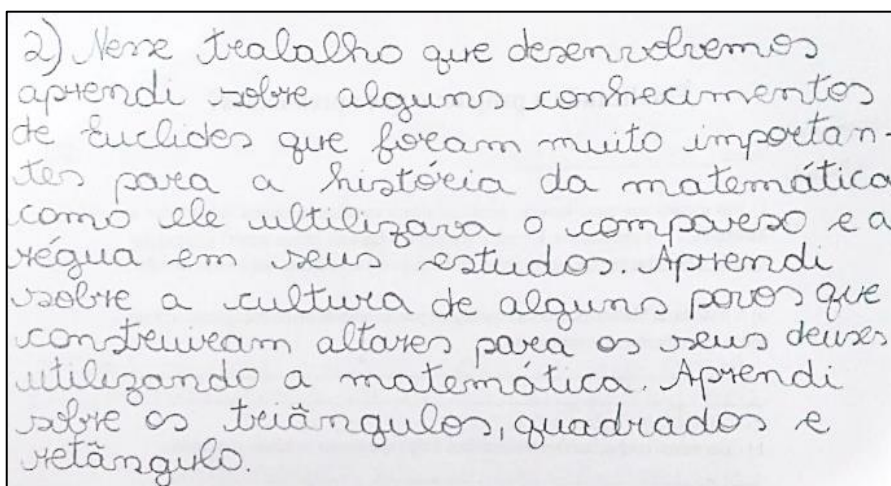 2) Nesse trabalho que desenvolvemos
aprendi sobre alguns conhecimentos
de Euclides que foram muito importan-
tes para a história da matemática
como ele ultilizava o compasso e a
régua em seus estudos. Aprendi
sobre a cultura de alguns povos que
construiram altares para os seus deuses
utilizando a matemática. Aprendi
sobre os triângulos, quadrados e
retângulo.